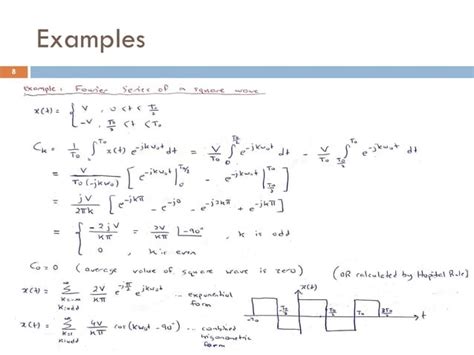 Examples
8
Example: Fourier Series of a square wave
x(t) = { V , 0 < t < T₀/2
-V , T₀/2 < t < T₀
Cₖ = 1/T₀ ∫₀^T₀ x(t) e^-jkω₀t dt = V/T₀ ∫₀^T₀/2 e^-jkω₀t dt - V/T₀ ∫_T₀/2^T₀ e^-jkω₀t dt
= V/T₀(-jkω₀) [ e^-jkω₀t |₀^T₀/2 - e^-jkω₀t |_T₀/2^T₀ ]
= jV/2πk [ e^-jkπ - e^-j0 - e^-j2kπ + e^-jkπ ]
= { -2jV/kπ = 2V/kπ ∠-90° , k is odd
0 , k is even
C₀ = 0 (average value of square wave is zero) (OR calculated by Hopital Rule)
x(t) = ∑ k=-∞ k=odd ∞ 2V/kπ e^-jπ/2 e^jkω₀t -- exponential form
x(t) = ∑ k=1 k=odd ∞ 4V/kπ cos(kω₀t - 90°) -- combined trigonometric form
x(t)
-T₀ -T₀/2 T₀/2 T₀ t